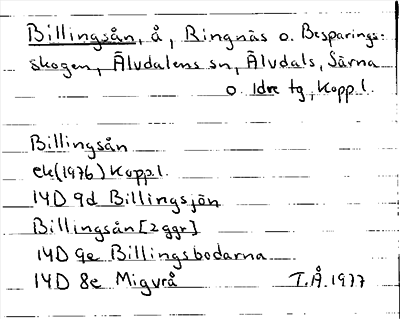 Billingsån, å, Ringnäs o. Besparings-
skogen, Älvdalens sn, Älvdals, Särna
o. Idre tg, Kopp.l.
Billingsån
ek(1976) Kopp.l.
14D 9d Billingsjön
Billingsån [2 ggr]
14D 9e Billingsbodarna
14D 8e Migvrå
T.Å. 1977